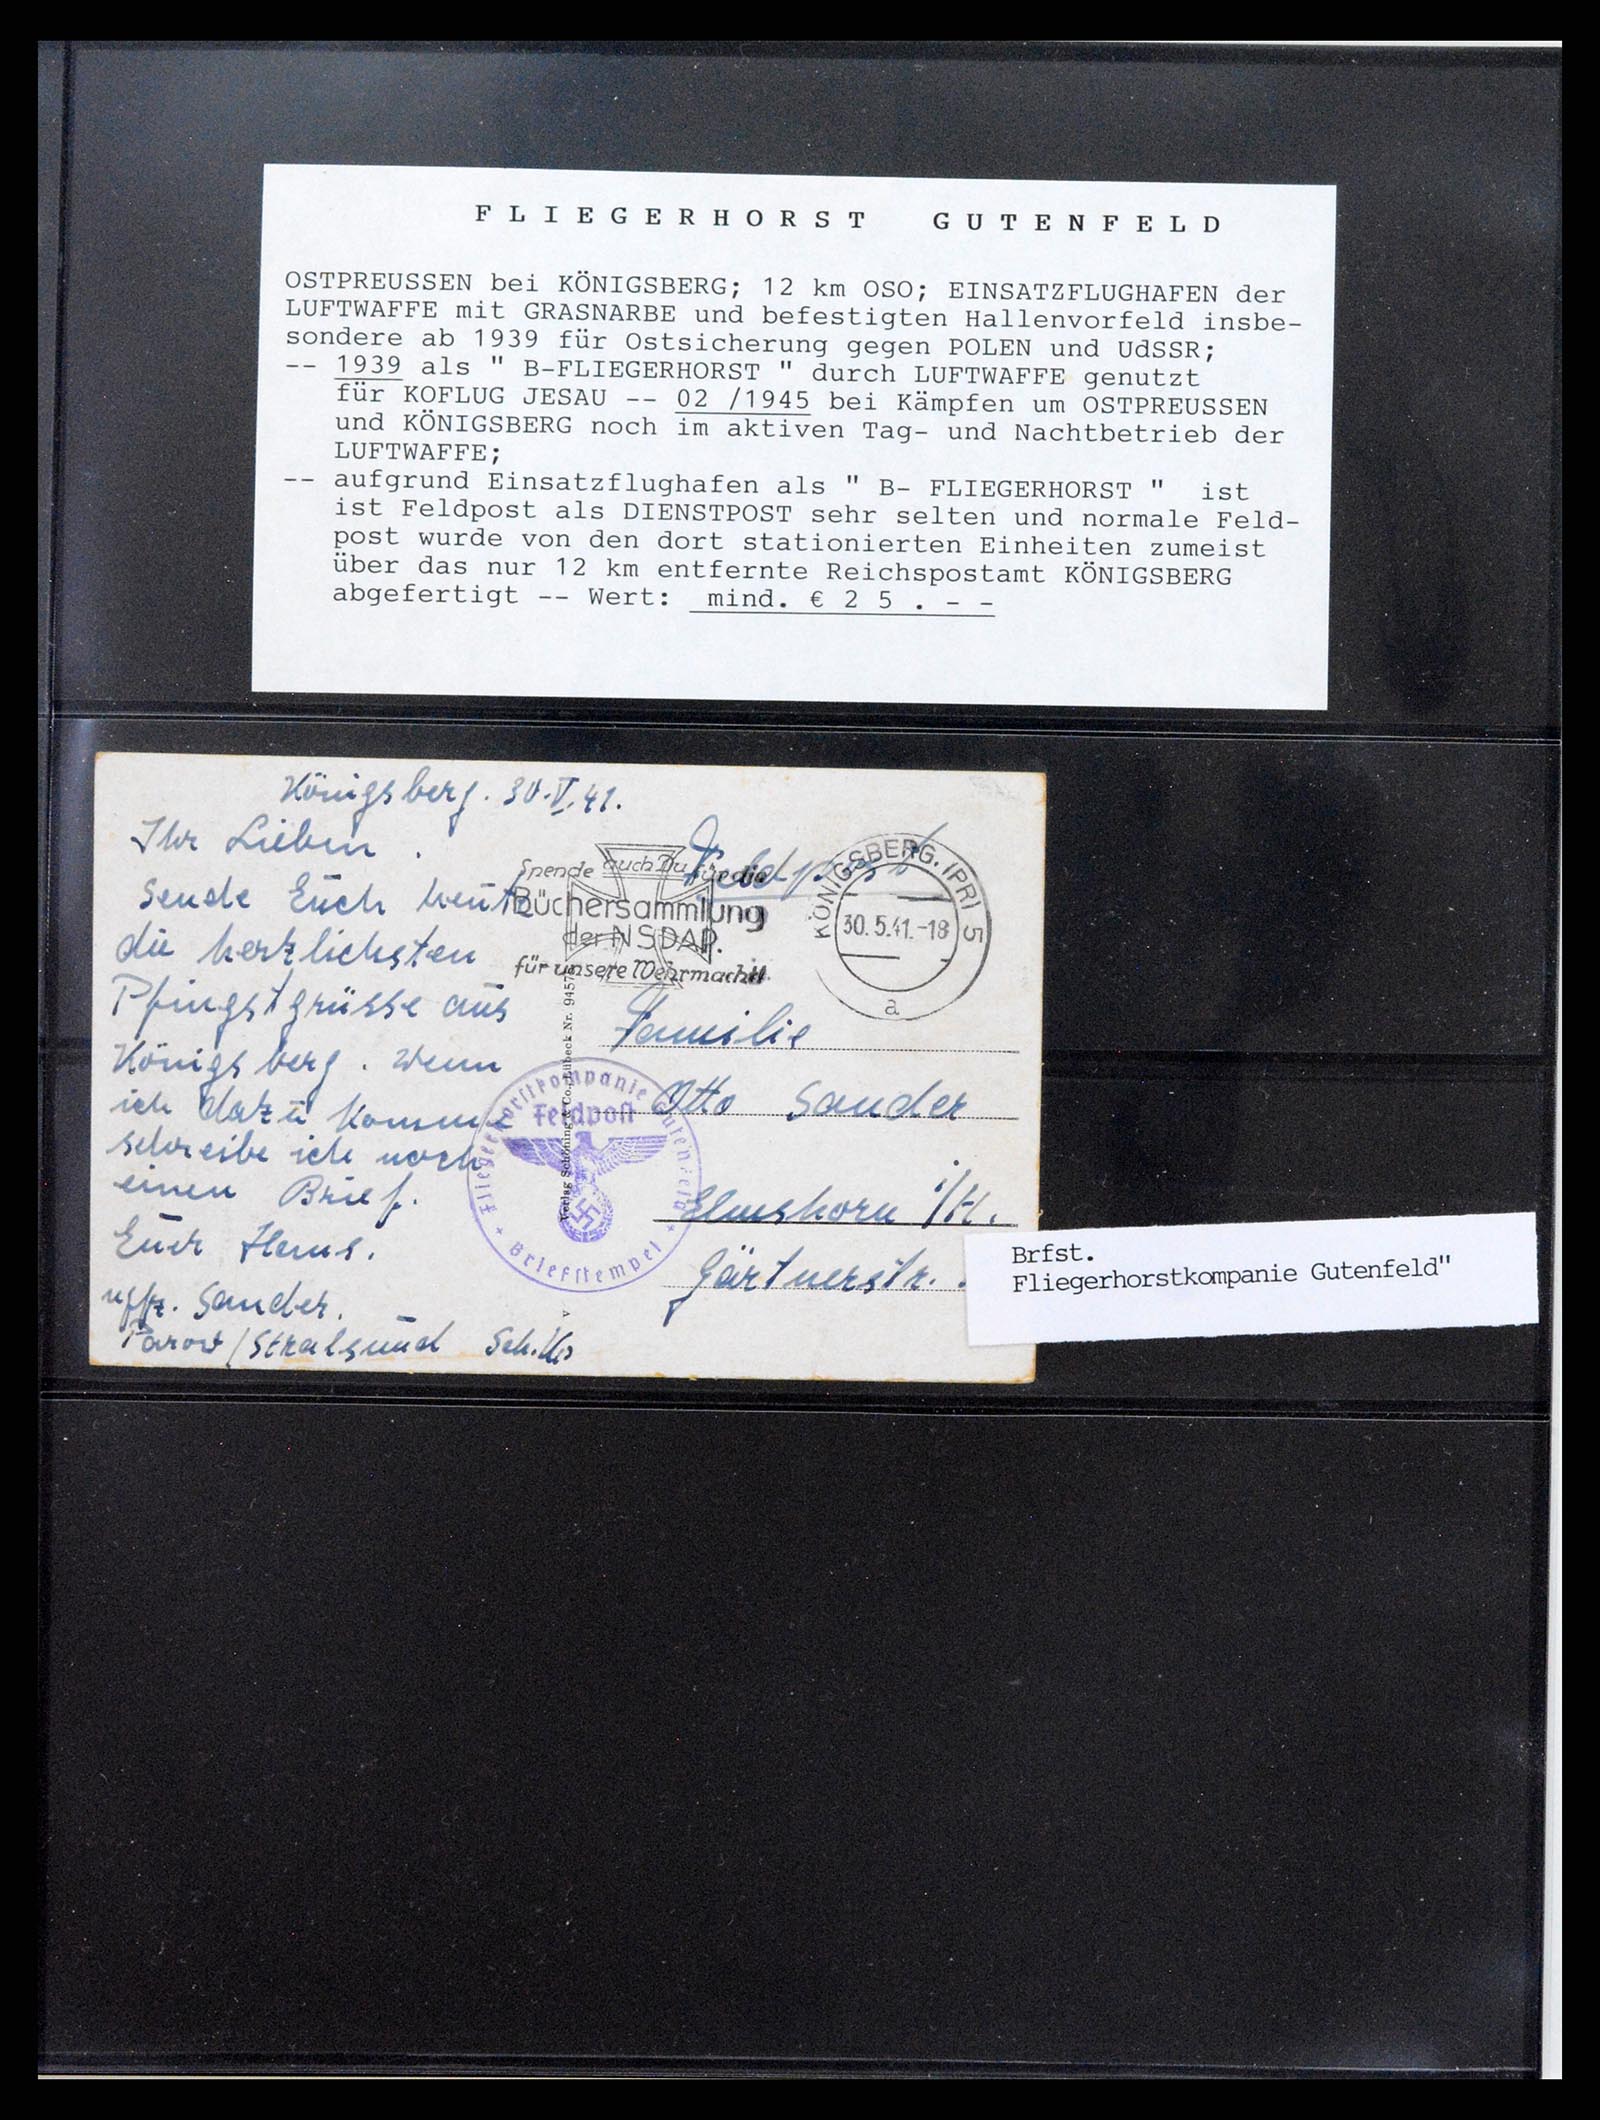 FLIEGERHORST GUTENFELD
OSTPREUSSEN bei KÖNIGSBERG; 12 km OSO; EINSATZFLUGHAFEN der
LUFTWAFFE mit GRASNARBE und befestigten Hallenvorfeld insbe-
sondere ab 1939 für Ostsicherung gegen POLEN und UdSSR;
-- 1939 als " B-FLIEGERHORST " durch LUFTWAFFE genutzt
für KOFLUG JESAU -- 02 /1945 bei Kämpfen um OSTPREUSSEN
und KÖNIGSBERG noch im aktiven Tag- und Nachtbetrieb der
LUFTWAFFE;
-- aufgrund Einsatzflughafen als " B- FLIEGERHORST " ist
ist Feldpost als DIENSTPOST sehr selten und normale Feld-
post wurde von den dort stationierten Einheiten zumeist
über das nur 12 km entfernte Reichspostamt KÖNIGSBERG
abgefertigt -- Wert: mind. € 2 5 . - -
Königsberg. 30.V.41.
Ihr Lieben.
Sende Euch heute
die herzlichsten
Pfingstgrüsse aus
Königsberg. Wenn
ich dazu komme
schreibe ich noch
einen Brief.
Euer Hans.
Uffz. Sander.
Parow/Stralsund
Feldpost
Spende auch Du für die
Büchersammlung
der NSDAP.
für unsere Wehrmacht
KÖNIGSBERG. (PR) 5
30.5.41.-18
a
Verlag Schöning & Co., Lübeck Nr. 9457
Familie
Otto Sander
Elmshorn i/H.
Gärtnerstr.
Fliegerhorstkompanie Gutenfeld
Feldpost
+ Briefstempel +
Brfst.
Fliegerhorstkompanie Gutenfeld"